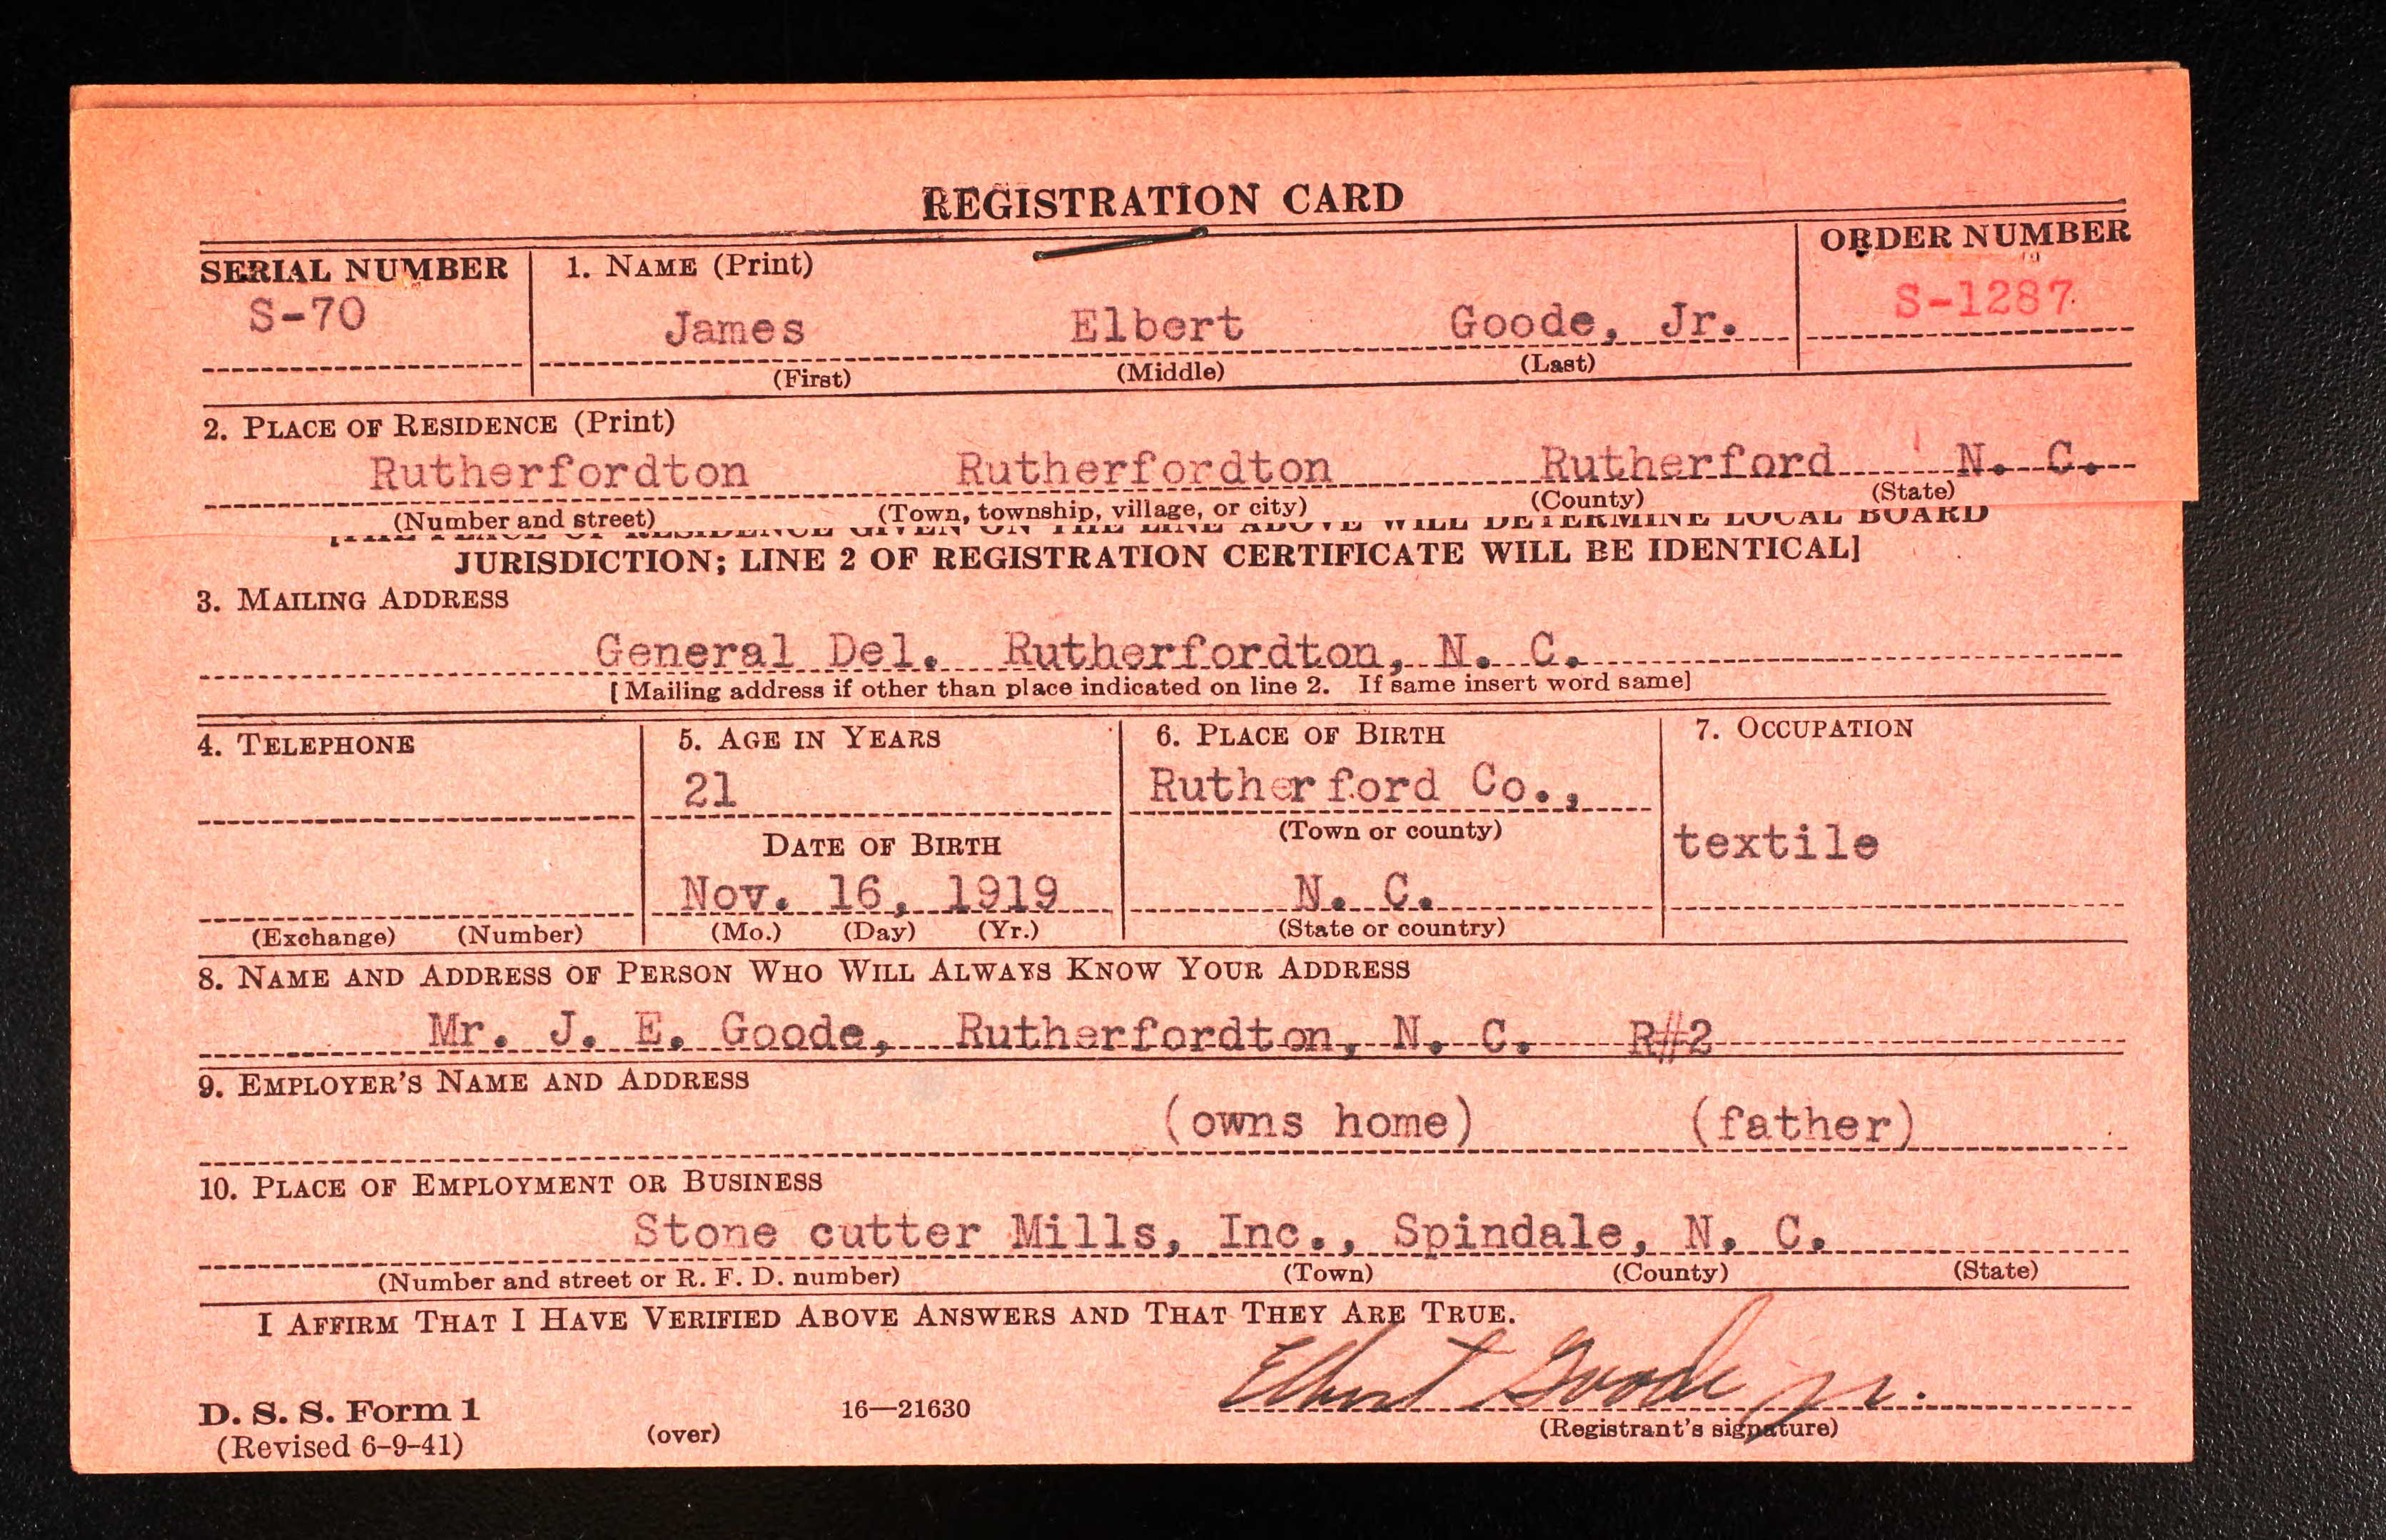 REGISTRATION CARD
SERIAL NUMBER 1. NAME (Print) ORDER NUMBER
S-70 James Elbert Goode, Jr. S-1287
(First) (Middle) (Last)
2. PLACE OF RESIDENCE (Print)
Rutherfordton Rutherfordton Rutherford N. C.
(Number and street) (Town, township, village, or city) (County) (State)
[THE PLACE OF RESIDENCE GIVEN ON THE LINE ABOVE WILL DETERMINE LOCAL BOARD
JURISDICTION; LINE 2 OF REGISTRATION CERTIFICATE WILL BE IDENTICAL]
3. MAILING ADDRESS
General Del. Rutherfordton, N. C.
[Mailing address if other than place indicated on line 2. If same insert word same]
4. TELEPHONE 5. AGE IN YEARS 6. PLACE OF BIRTH 7. OCCUPATION
21 Rutherford Co.,
(Town or county)
DATE OF BIRTH textile
Nov. 16, 1919 N. C.
(Exchange) (Number) (Mo.) (Day) (Yr.) (State or country)
8. NAME AND ADDRESS OF PERSON WHO WILL ALWAYS KNOW YOUR ADDRESS
Mr. J. E. Goode, Rutherfordton, N. C. R#2
9. EMPLOYER'S NAME AND ADDRESS
(owns home) (father)
10. PLACE OF EMPLOYMENT OR BUSINESS
Stone cutter Mills, Inc., Spindale, N. C.
(Number and street or R. F. D. number) (Town) (County) (State)
I AFFIRM THAT I HAVE VERIFIED ABOVE ANSWERS AND THAT THEY ARE TRUE.
Elbert Goode jr.
D. S. S. Form 1 16—21630
(Revised 6-9-41) (over) (Registrant's signature)